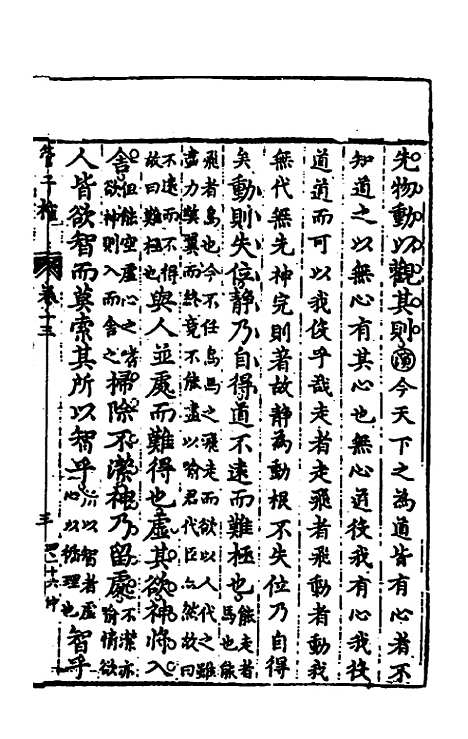 先物動以觀其則演今天下之為道皆有心者不
知道之以無心有其心也無心道役我有心我役
道道而可以我役乎哉走者走飛者飛動者動我
無代無先神完則著故靜為動根不失位乃自得
矣動則失位靜乃自得道不遠而難極也能走者馬也能
飛者鳥也今不任鳥馬之飛走而欲以人代之雖
盡力樊翼而終竟不能盡以喻君代臣亦然故曰
不遠而不得
故曰難極也與人並處而難得也虛其欲神將入
舍但能空虛心之嗜欲神則入而舍之掃除不潔神乃留處不潔亦喻情欲
人皆欲智而莫索其所以智乎所以智者虛心以循理也智乎
管子榷
卷十三
三